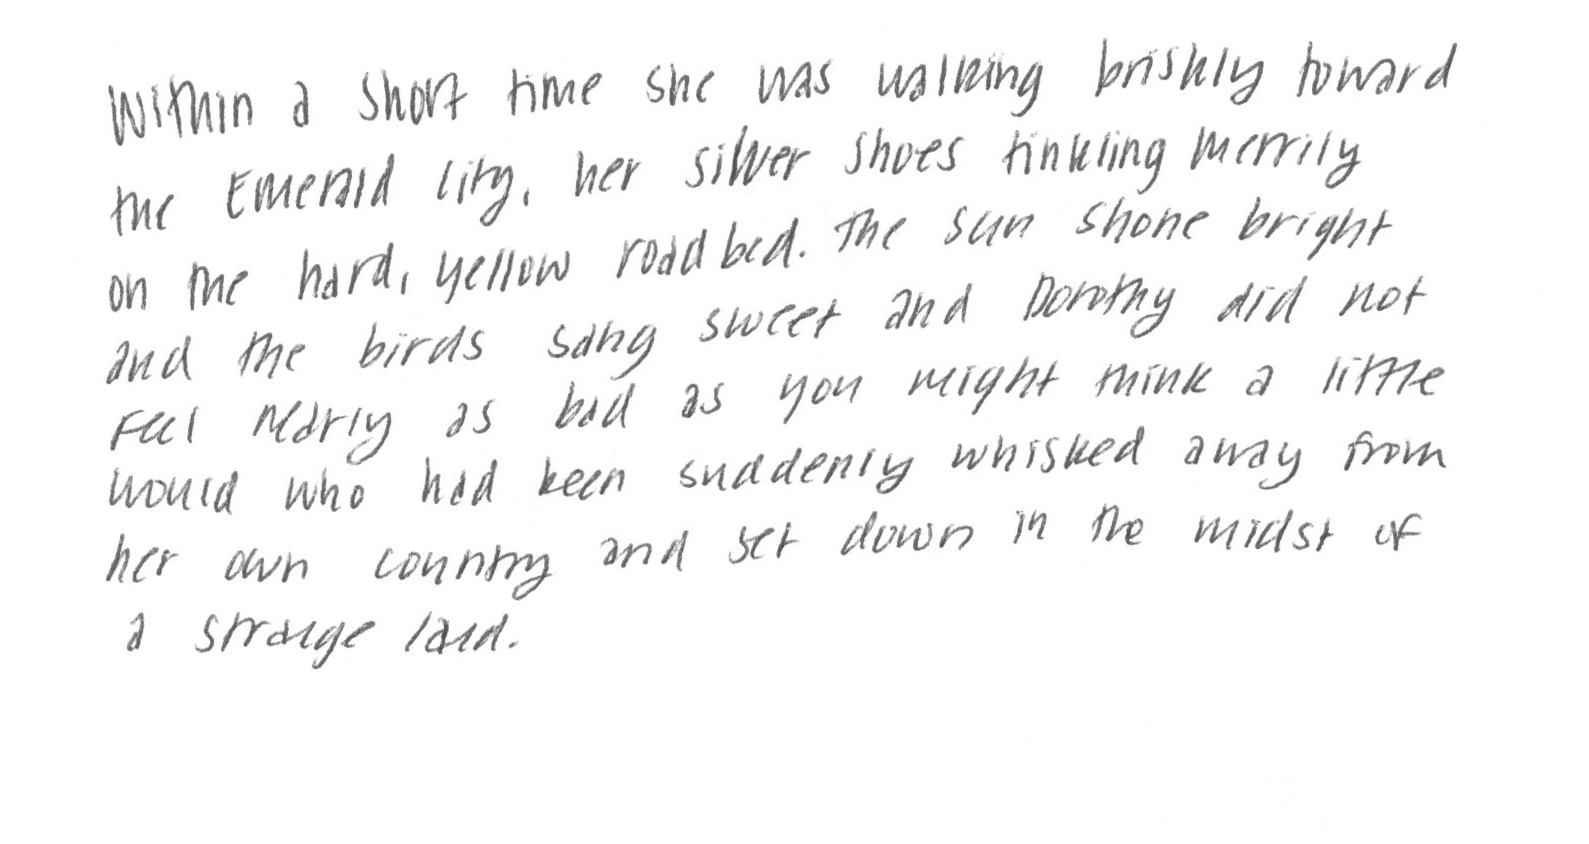 Within a short time she was walking briskly toward
the Emerald City, her silver shoes tinkling merrily
on the hard, yellow roadbed. The sun shone bright
and the birds sang sweet and Dorothy did not
feel nearly as bad as you might think a little
would who had been suddenly whisked away from
her own country and set down in the midst of
a strange land.